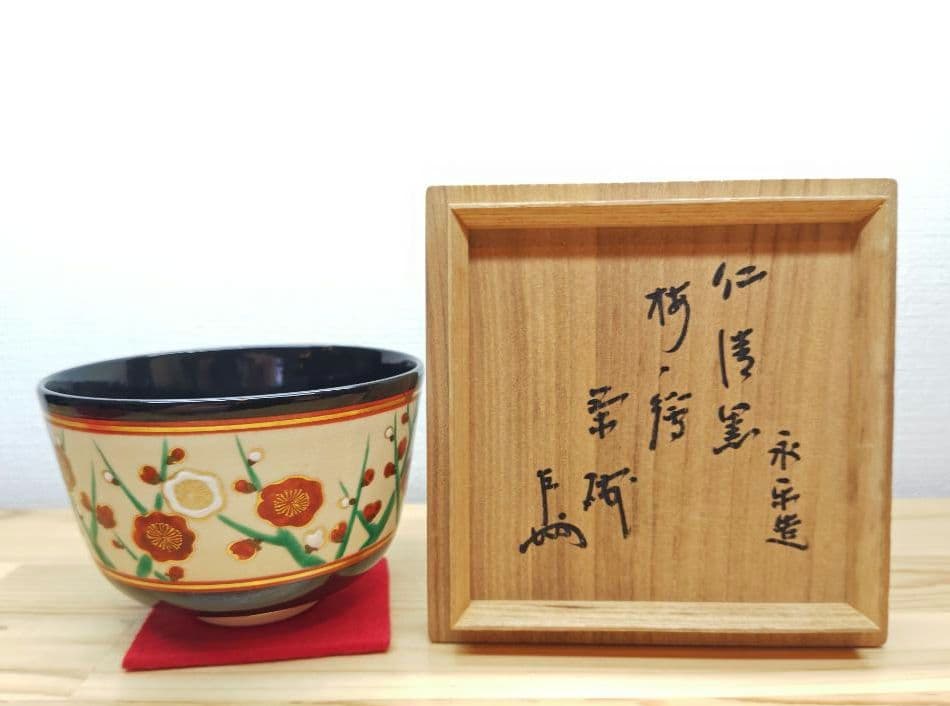 永楽造
仁清黒
梅ノ絵
茶碗